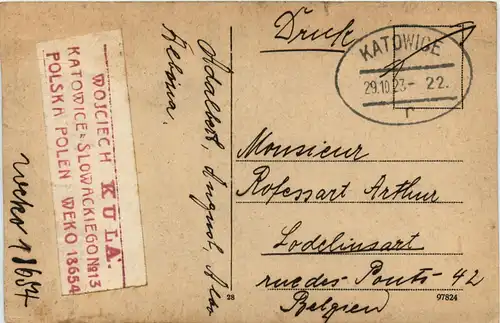 WOJCIECH KULA.
KATOWICE=SŁOWACKIEGO №13
POLSKA POLEN WEKO 18654
weko 18654
Adalbert, August,
Druk
KATOWICE
29.10.23- 22.
r
Monsieur
Rofessart Arthur
Lodelinsart
rue des Ponts 42
Belgien
28
97824